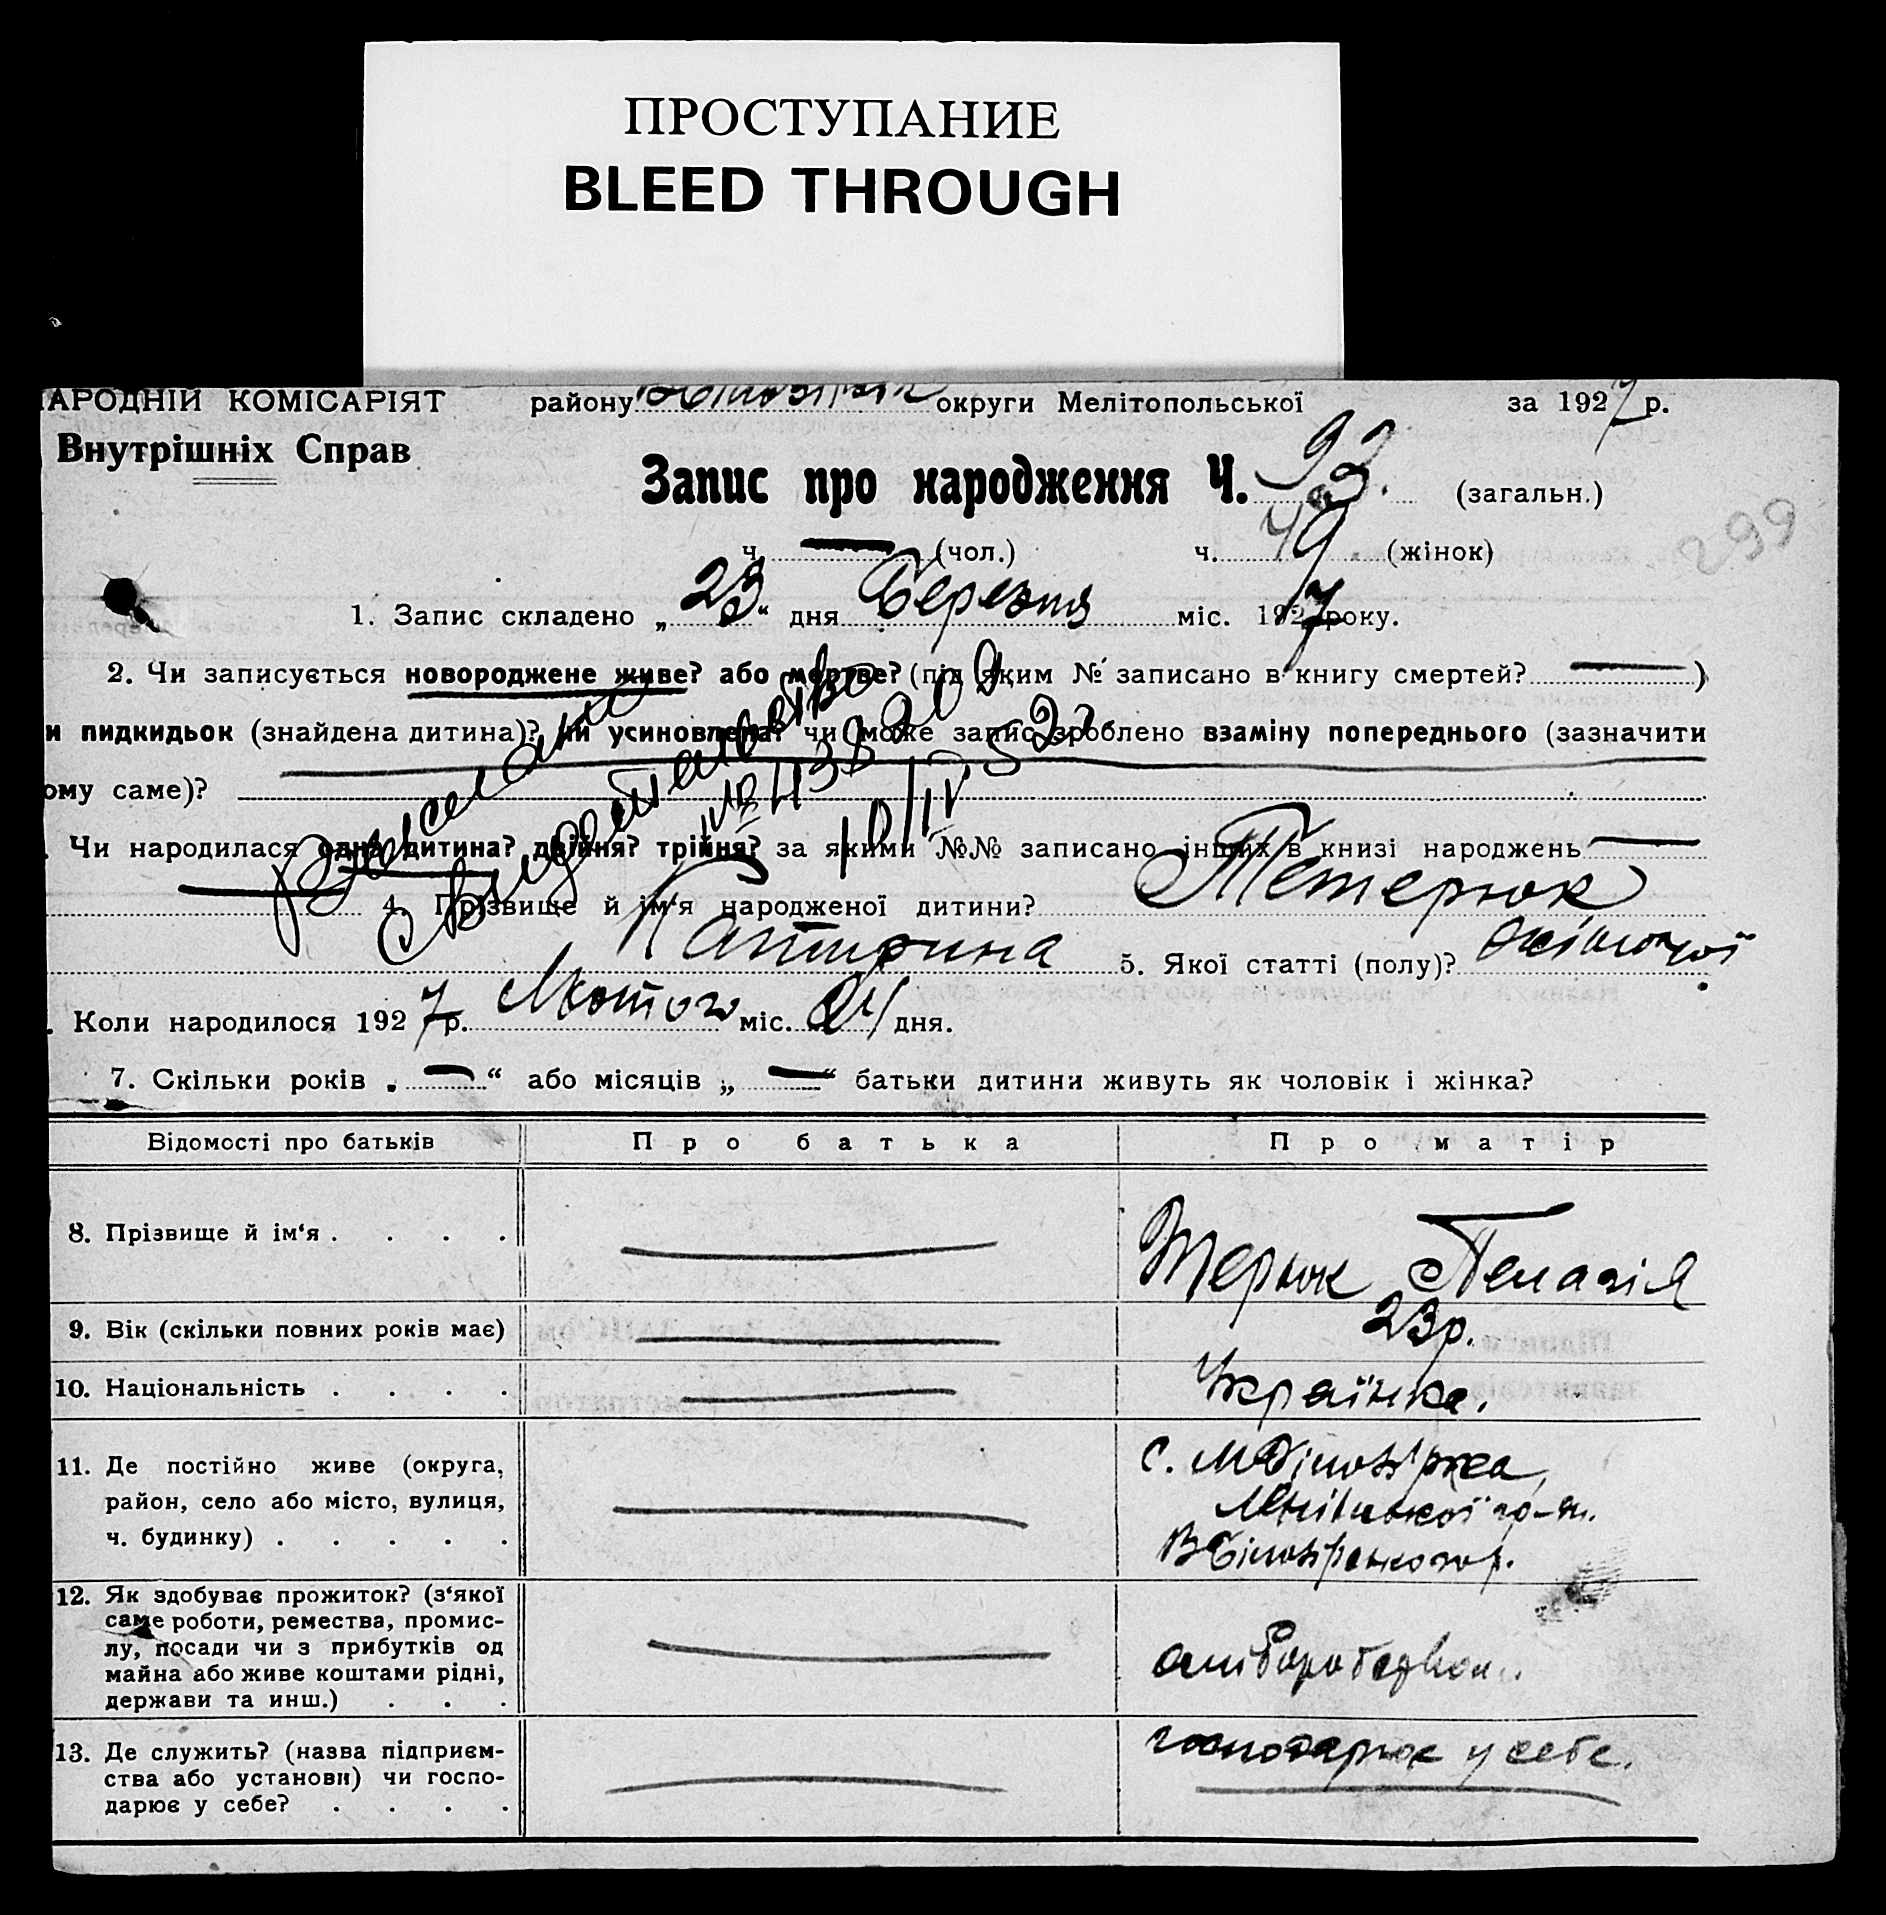 ПРОСТУПАНИЕ
BLEED THROUGH
АРОДНІЙ КОМІСАРІЯТ району округи Мелітопольської за 1927 р.
Внутрішніх Справ
Запис про народження Ч. 93. (загальн.)
299
ч. — (чол.) ч. 49. (жінок)
1. Запис складено „23“ дня Березня міс. 1927 року.
2. Чи записується новороджене живе? або мертве? (під яким № записано в книгу смертей? — )
и пидкидьок (знайдена дитина)? чи усиновлена? чи може запис зроблено взаміну попереднього (зазначити
ому саме)?
Выдано свидетельство
10/IV 52 г.
. Чи народилася одна дитина? двійня? трійня? за якими №№ записано інших в книзі народжень —
4. Прізвище й ім'я народженої дитини? Тетерюк
Катирина 5. Якої статті (полу)? жіночої
. Коли народилося 1927 р. Лютого міс. 24 дня.
7. Скільки років „ — “ або місяців „ — “ батьки дитини живуть як чоловік і жінка?
Відомості про батьків Про батька Про матір
8. Прізвище й ім‘я . . . . — Тетерюк Пелагія
9. Вік (скільки повних років має) — 23 р.
10. Національність . . . . — Українка.
11. Де постійно живе (округа,
район, село або місто, вулиця,
ч. будинку) . . . . . —
с. М Білозірка,
12. Як здобуває прожиток? (з‘якої
саме роботи, ремества, промис-
лу, посади чи з прибутків од
майна або живе коштами рідні,
держави та инш.) . . . —
13. Де служить? (назва підприєм-
ства або установи) чи госпо-
дарює у себе? . . . . —
господарює у себе.